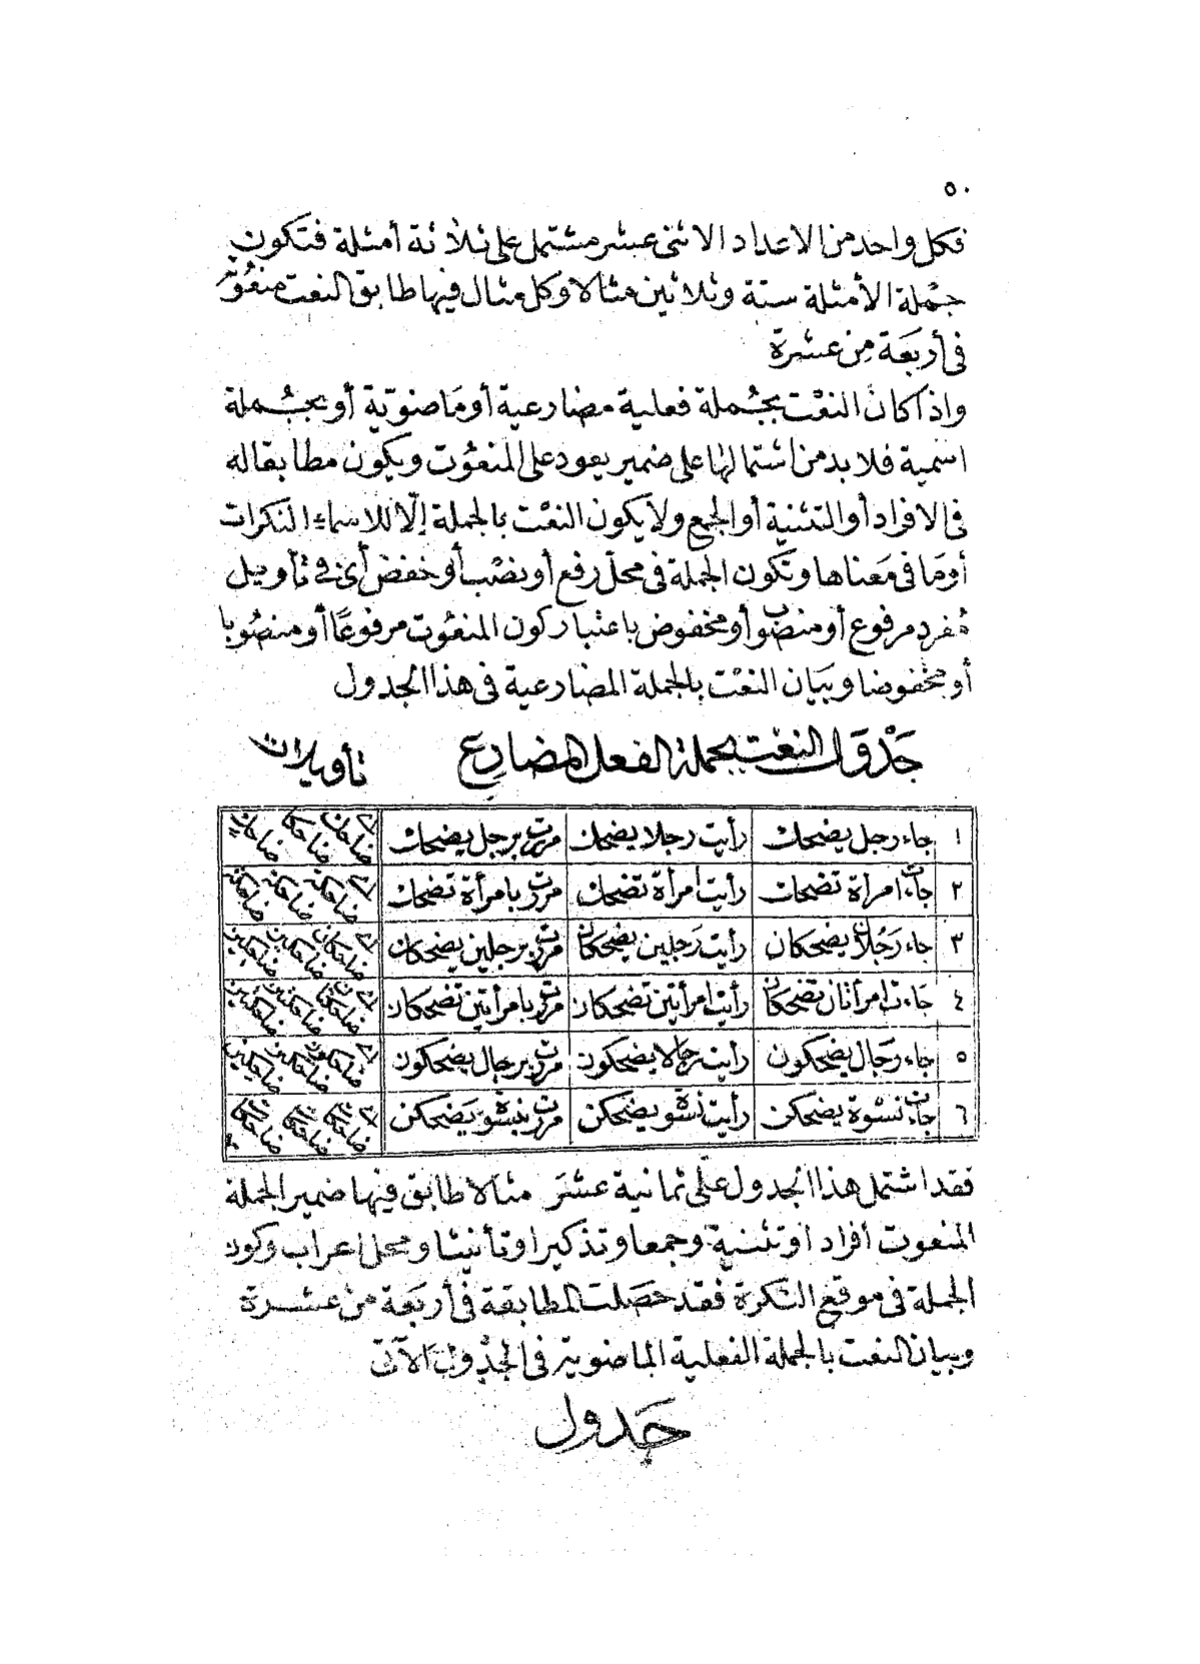 ٥٠
فكل واحد من الاعداد الاثنى عشر مشتمل على ثلاثة أمثلة فتكون
جملة الأمثلة ستة وثلاثين مثالا وكل مثال فيها طابق النعت منعوته
فى أربَعَة مِن عشرة
واذا كان النعْت بجُملة فعلية مضارعية أو مَاضويّة أو بجُملة
اسمية فلا بد من اشتمالها على ضمير يعود على المنعُوت ويكون مطابقا له
فى الافراد أو التثنية أو الجمع ولا يكون النعْت بالجملة إلّا للاسماء النكرات
أومَا فى مَعناها وتكون الجملة فى محل رفع أو نصْب أو خفض أى فى تأويل
مُفرد مرفوع أو منصوب أو مخفوض باعتبار كون المنعُوت مرفوعًا أو منصُوبا
أو مخفوضا وبَيَان النعْت بالجملة المضارعية فى هذا الجدول
جَدْوَل النعْت بجملة الفعل المضارِع تأويلات
١ جاء رجل يضحك رأيت رجلا يضحك مررت برجل يضحك اے ضاحك ضاحكا ضاحك
٢ جاءت امرأة تضحك رأيت امرأة تضحك مررت بامرأة تضحك اے ضاحكة ضاحكة ضاحكة
٣ جاء رَجُلان يضحكان رأيت رَجلين يضحكان مررت برجلين يضحكان اے ضاحكان ضاحكين ضاحكين
٤ جَاءت امرأتان تضحكان رأيت امرأتين تضحكان مررت بامرأتين تضحكان اے ضاحكتان ضاحكتين ضاحكتين
٥ جاء رجَال يضحكون رأيت رجالا يضحكون مررت برجال يضحكون اے ضاحكون ضاحكين ضاحكين
٦ جاءت نسْوة يضحكن رأيت نسْوة يضحكن مررت بنسْوة يَضحكن اے ضاحكات ضاحكات ضاحكات
فقد اشتمل هذا الجدول على ثمانية عشَر مثالا طابق فيها ضمير الجملة
المنعوت أفراد اوتثنية وجمعا وتذكيرا وتأنيثا ومحل اعراب وكون
الجملة فى موقع النكرة فقد حصَلت المطابقة فى أربَعَة من عشرة
وبيان النعت بالجملة الفعلية الماضوية فى الجدْول الآتى
جَدول